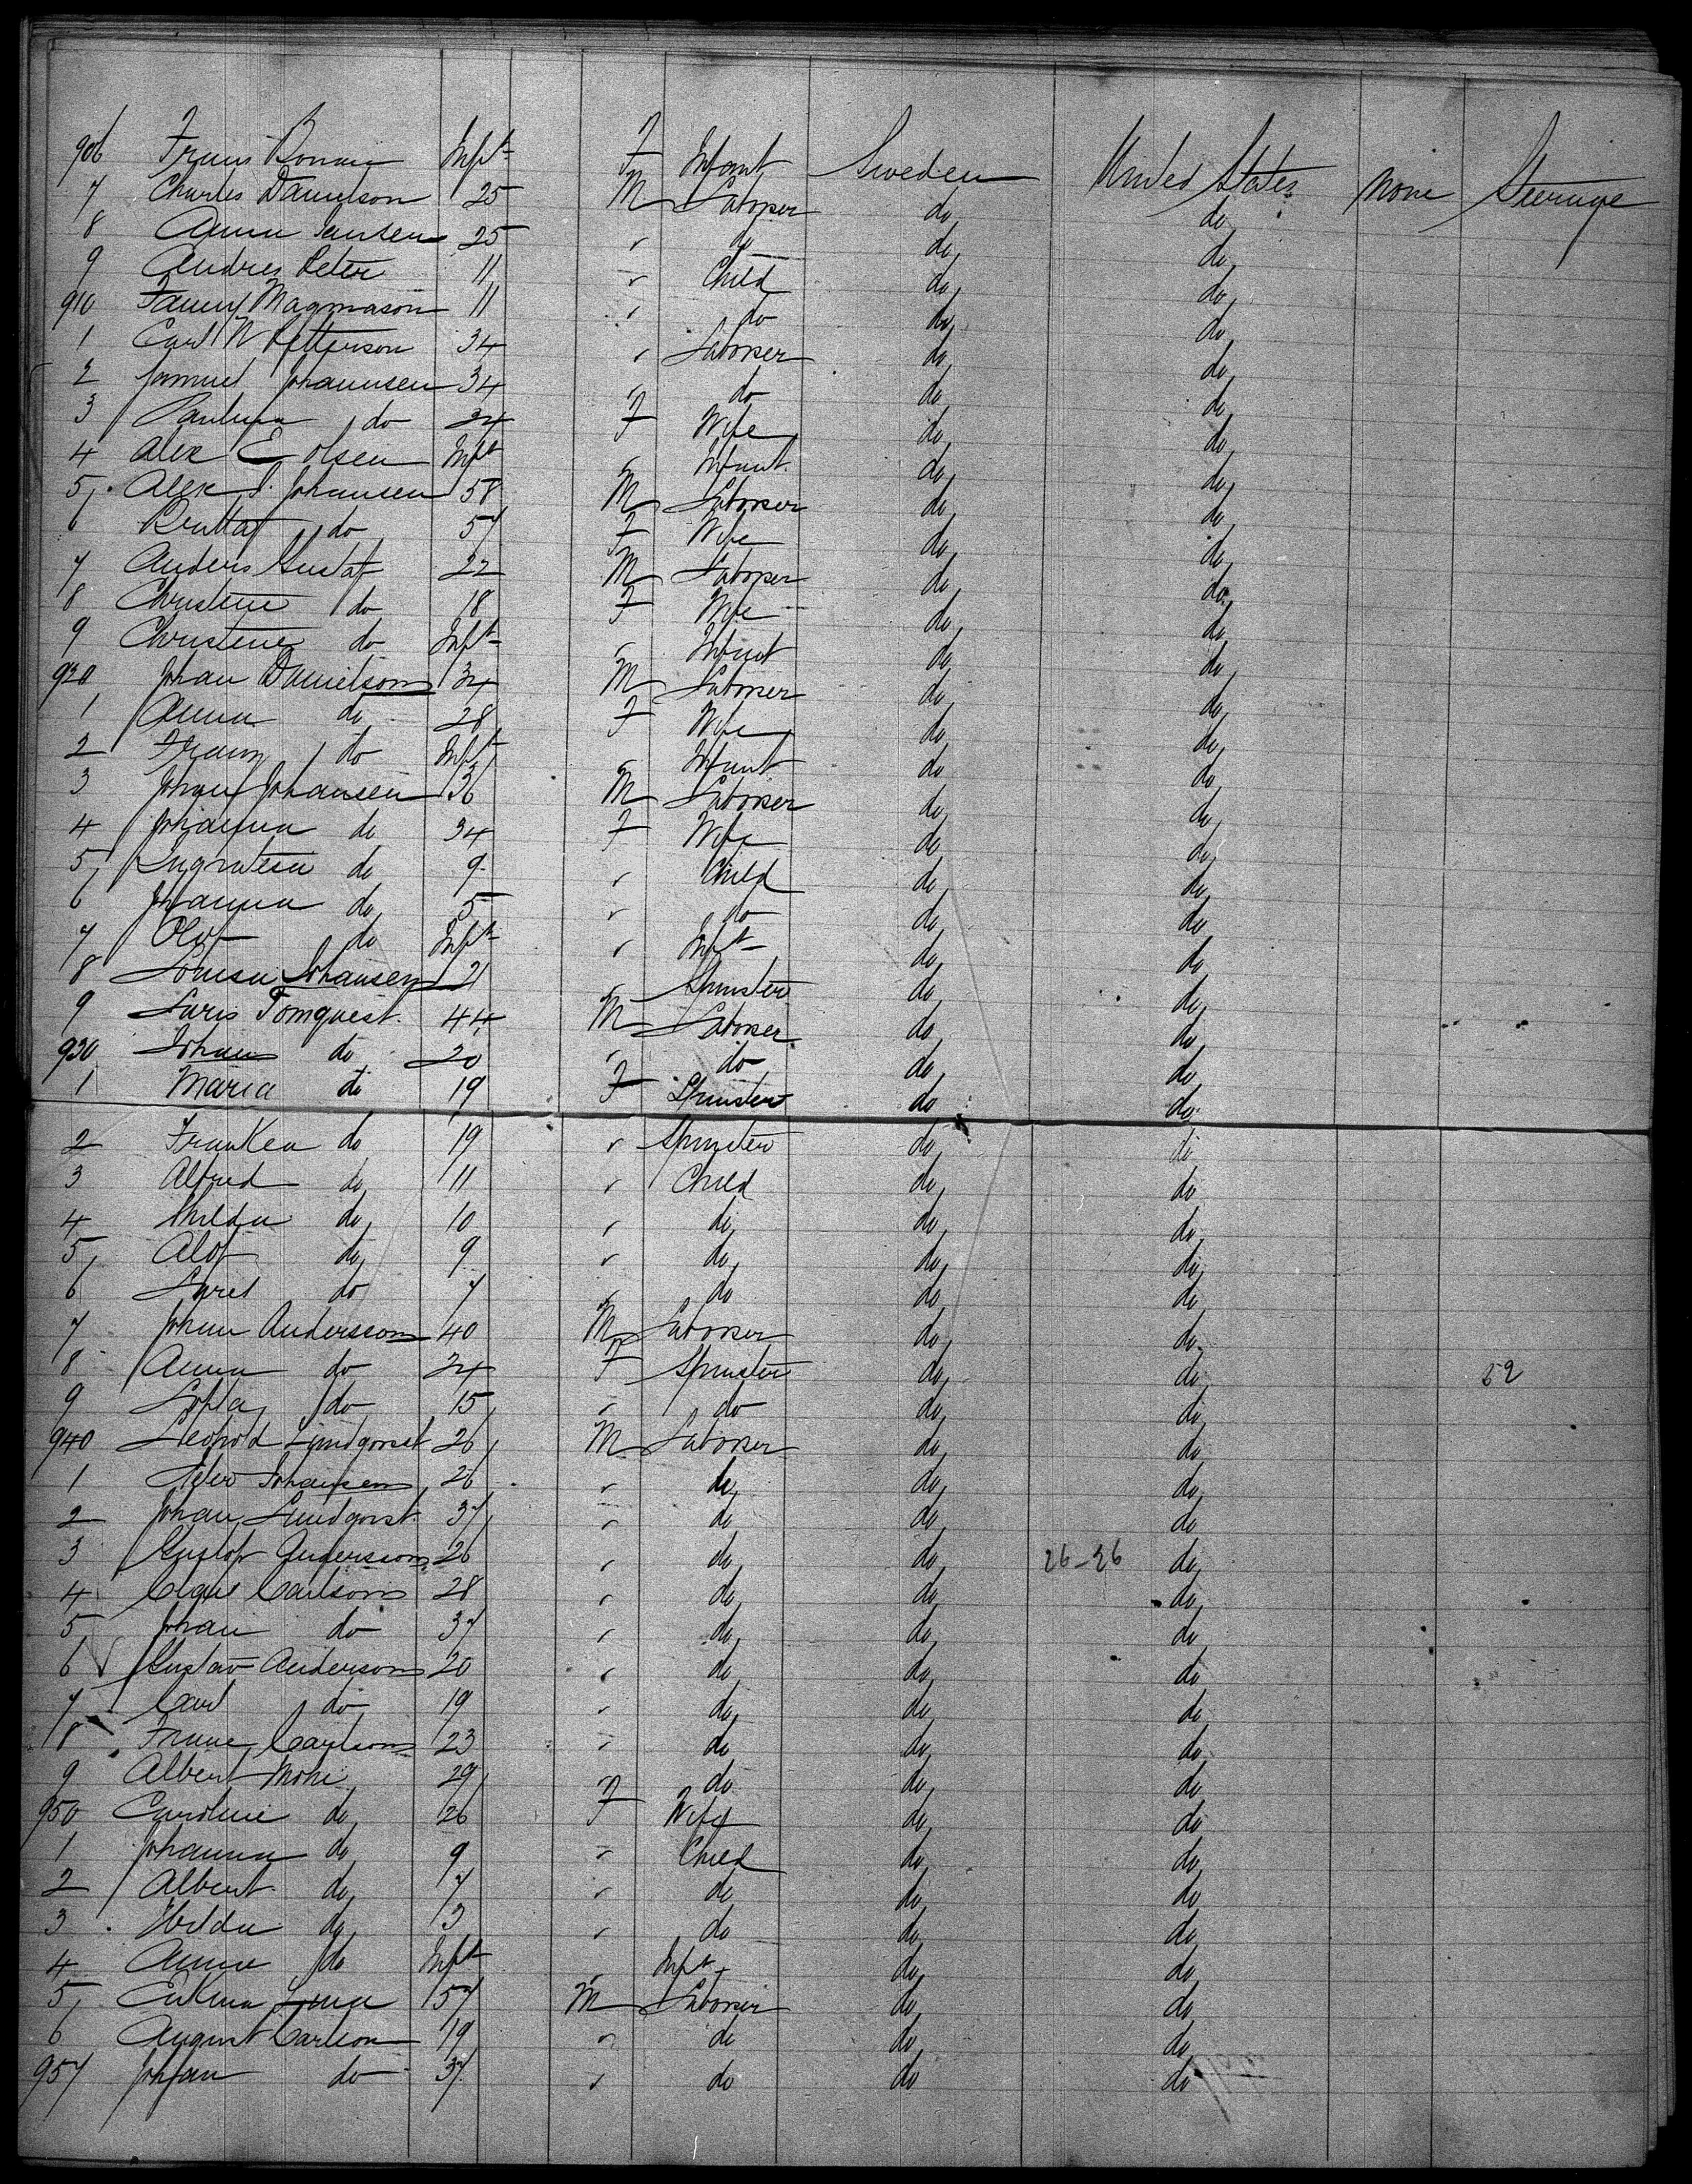 906 Frans Boman Inft F Infant Sweden United States none Steerage
7 Charles Danielson 25 M Laborer do do
8 Anna Jansen 25 " do do do
9 Andres Peter 11 " Child do do
910 Fanny Magnnason 11 " do do do
1 Carl N Petterson 34 " Laborer do do
2 Samuel Johannsen 34 " do do do
3 Paulina do 34 F Wife do do
4 Alex E Olsen Inft " Infant do do
5 Alex P. Johansen 58 M Laborer do do
6 Brutta do 57 F Wife do do
7 Anders Gustaf 22 M Laborer do do
8 Christine do 18 F Wife do do
9 Christine do Inft " Infant do do
920 Johan Danielson 34 M Laborer do do
1 Anna do 28 F Wife do do
2 Frans do Inft " Infant do do
3 Johan Johansen 36 M Laborer do do
4 Johanna do 34 F Wife do do
5 do 9 " Child do do
6 Johanna do 5 " do do do
7 Olof do Inft " Inft do do
8 Louisa Johansen 21 " Spinster do do
9 Laris Tomquest 44 M Laborer do do
930 Johan do 20 " do do do
1 Maria do 19 F Spinster do do
2 Franken do 19 " Spinster do do
3 Alfred do 11 " Child do do
4 Hilda do 10 " do do do
5 Alof do 9 " do do do
6 Laret do 7 " do do do
7 Johan Andersson 40 M Laborer do do
8 Anna do 24 F Spinster do do 52
9 Sofia do 15 " do do do
940 Leopold Lundqvist 26 M Laborer do do
1 Peter Johansen 26 " do do do
2 Johan Lundqvist 37 " do do do
3 Gustof Andersson 26 " do do 26-26 do
4 Claus Carlson 28 " do do do
5 Johan do 37 " do do do
6 Gustav Anderson 20 " do do do
7 Carl do 19 " do do do
8 Franc Carlson 23 " do do do
9 Albert Mohi 29 " do do do
950 Caroline do 26 F Wife do do
1 Johanna do 9 " Child do do
2 Albert do 7 " do do do
3 Hilda do 3 " do do do
4 Anna do Inft " Inft do do
5 57 M Laborer do do
6 August Carlson 19 " do do do
957 Johan do 37 " do do do